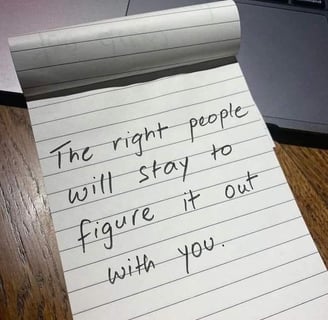 The right people
will stay to
figure it out
with you.